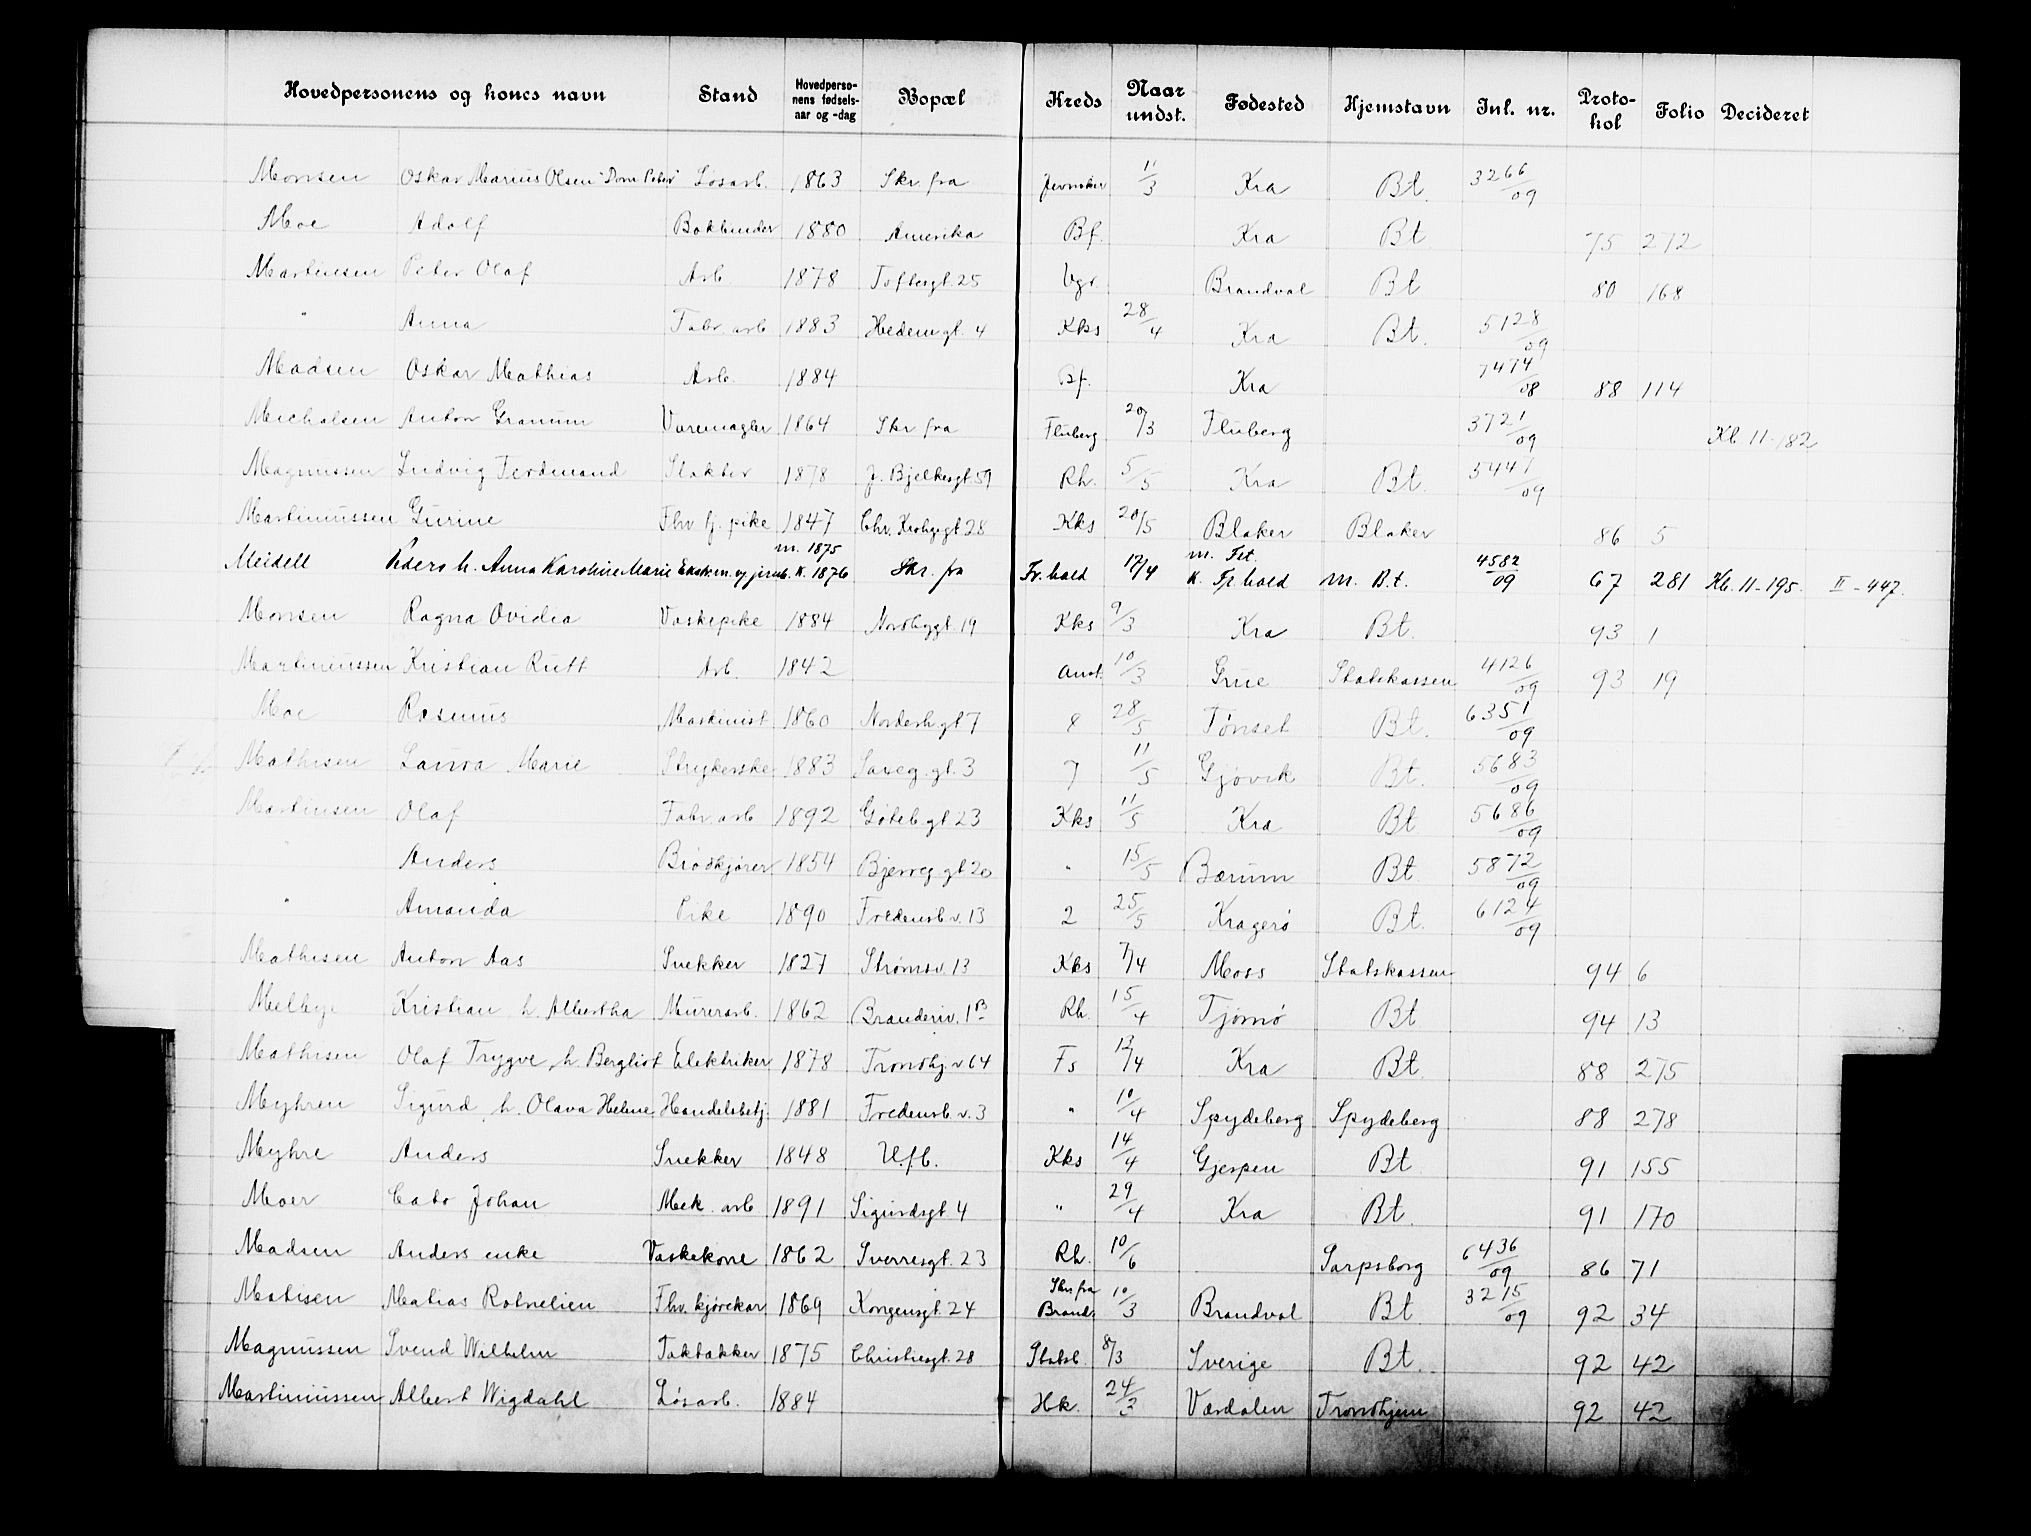 Hovedpersonens og kones navn Stand Hovedpersonens fødsels-aar og -dag Bopæl Kreds Naar undst. Fødested Hjemstavn Inl. nr. Proto-kol Folio Decideret
Monsen Oskar Marius Olsen Løsarb. 1863 Skr. fra 11/3 Kra Bt. 3266/09
Moe Adolf Bokbinder 1880 Amerika Bf. Kra Bt. 75 272
Martinsen Peter Olaf Arb. 1878 Toftesgt. 25 Vgr. Brandval Bt 80 168
" Anna Fabr. arb 1883 Hedem gt. 4 Kks 28/4 Kra Bt. 5128/09
Madsen Oskar Mathias Arb. 1884 Bf. Kra 7474/08 88 114
Micholsen Anton Granum Varemægler 1864 Skr fra Fluberg 20/3 Fluberg 3721/09 Kb. 11-182
Magnussen Ludvig Ferdinand Slakter 1878 J. Bjelkesgt 59 Rh. 5/5 Kra Bt. 5447/09
Martinussen Gurine Fhv tj. pike 1847 Chr. Krohgsgt 28 Kks 20/5 Blaker Blaker 86 5
Meidell Peders h. Anna Karoline Marie m. 1875 k. 1876 Skr. fra Fr.hald 17/4 m. Fst. k. Fr.hald m. Bt. 4582/09 67 281 Kb. 11-195. II-447.
Monsen Ragna Ovidia Vaskepike 1884 Nordbygt. 19 Kks 9/3 Kra Bt. 93 1
Martiniussen Kristian Rutt Arb. 1842 Anst. 10/3 Grue Statskassen 4126/09 93 19
Moe Rasmus Maskinist 1860 Nordersh gt 7 8 28/5 Tønset Bt. 6351/09
Mathisen Laura Marie Strykerske 1883 Saxeg. gt. 3 7 11/5 Gjøvik Bt. 5683/09
Martinsen Olaf Fabr. arb 1892 Gøteb.gt 23 Kks 11/5 Kra Bt 5686/09
" Anders Brødkjører 1854 Bjerreg. gt 20 " 15/5 Bærum Bt 5872/09
" Amanda Pike 1890 Fredensb v. 13 2 25/5 Kragerø Bt. 6124/09
Mathisen Anton Aas Snekker 1827 Strømsv. 13 Kks 7/4 Moss Statskassen 94 6
Melbye Kristian h Albertha Murerarb. 1862 Branderiv. 1B Rh. 15/4 Tjømø Bt 94 13
Mathisen Olaf Trygve h. Bergliot Elektriker 1878 Trondhj. v 64 Fs 13/4 Kra Bt. 88 275
Myhren Sigurd h. Olava Helene Handelsbetj. 1881 Fredensb v. 3 " 10/4 Spydeberg Spydeberg 88 278
Myhre Anders Snekker 1848 U.f.b. Kks 14/4 Gjerpen Bt 91 155
Moer Cato Johan Mek. arb 1891 Sigurdsgt. 4 " 29/4 Kra Bt. 91 170
Madsen Anders enke Vaskekone 1862 Sverresgt. 23 Rh. 10/6 Sarpsborg 6436/09 86 71
Matisen Matias Rotnelien Fhv. kjørekar 1869 Kongensgt. 24 Skr fra Brand. 10/3 Brandval Bt 3215/09 92 34
Magnussen Svend Wilhelm Taktækker 1875 Christiesgt. 28 Statsb. 8/3 Sverige Bt. 92 42
Martiniussen Albert Wigdahl Løsarb. 1884 Hk. 24/3 Værdalen Trondhjem 92 42